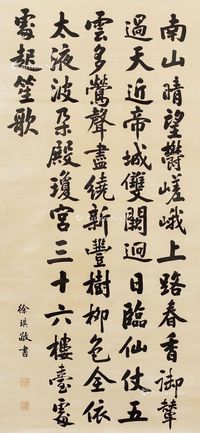 南山晴望鬱嵯峨上路春香御輦
過天近帝城雙闕迥日臨仙仗五
雲多鶯聲盡繞新豐樹柳色全依
太液波朵殿瓊宮三十六樓臺處
處起笙歌
徐琪敬書